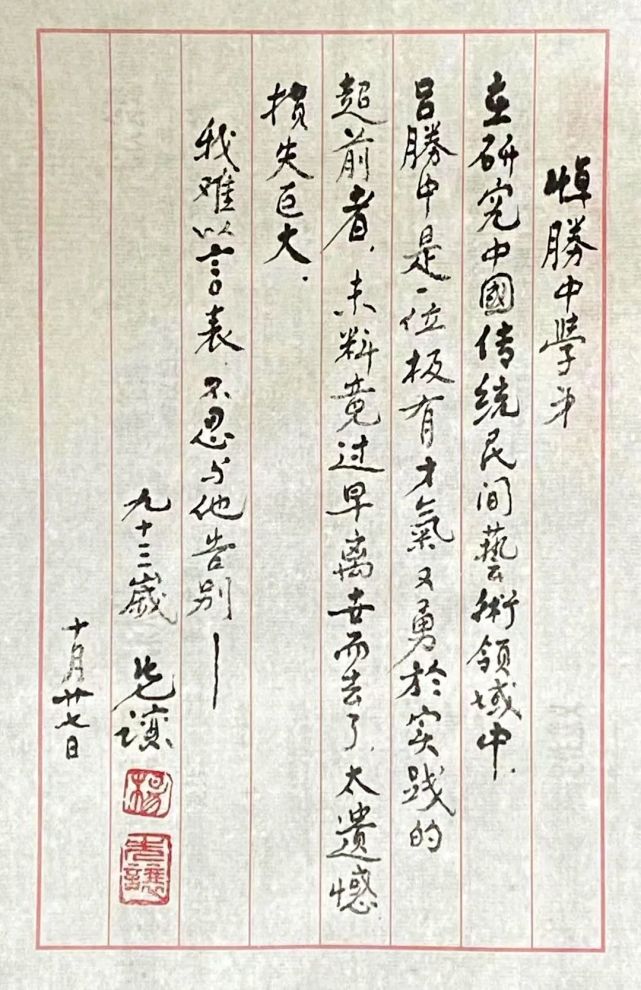 悼勝中學弟
在研究中國传统民间藝術领域中.
吕勝中是一位极有才氣又勇於实践的
超前者.未料竟过早离世而去了.太遺憾
损失巨大.
我难以言表.不忍与他告别—
九十三歲 先讓
十月廿七日
楊
先讓